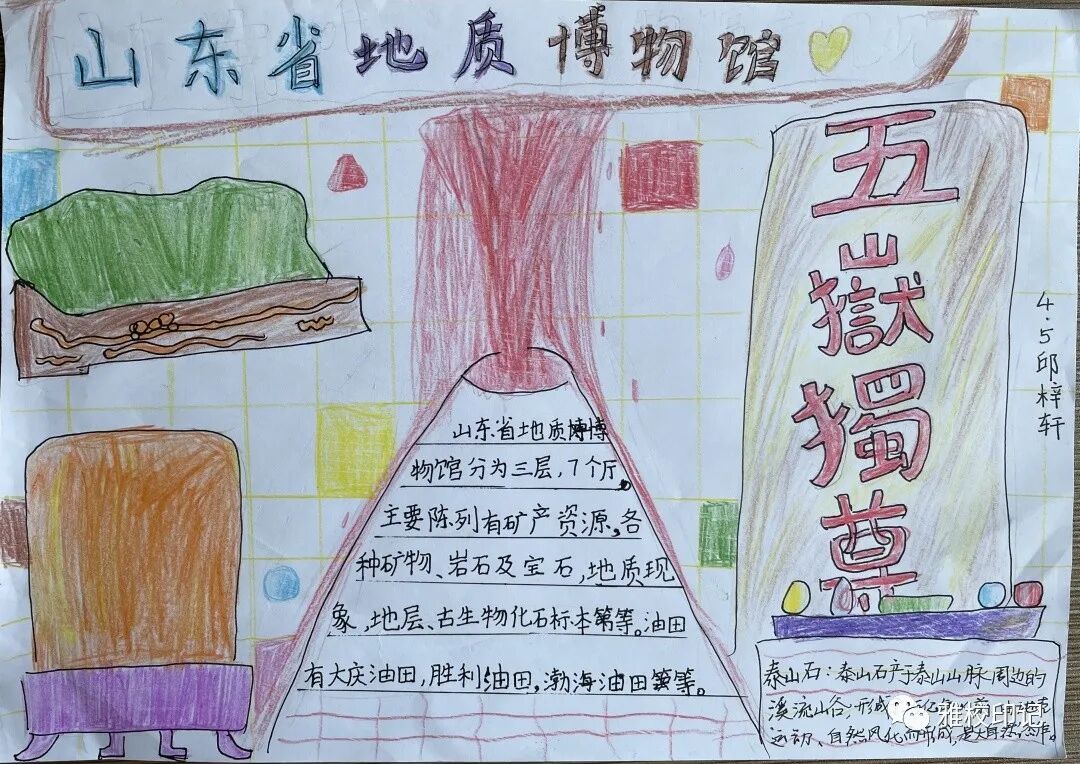 山东省地质博物馆
五嶽獨尊
4.5邱梓轩
山东省地质博博
物馆分为三层,7个厅。
主要陈列有矿产资源,各
种矿物、岩石及宝石,地质现
象,地层、古生物化石标本等等。油田
有大庆油田,胜利油田,渤海油田等等。
泰山石:泰山石产于泰山山脉周边的
溪流山谷,形成
运动、自然风化而形成,是大自然杰作。
雅校印记